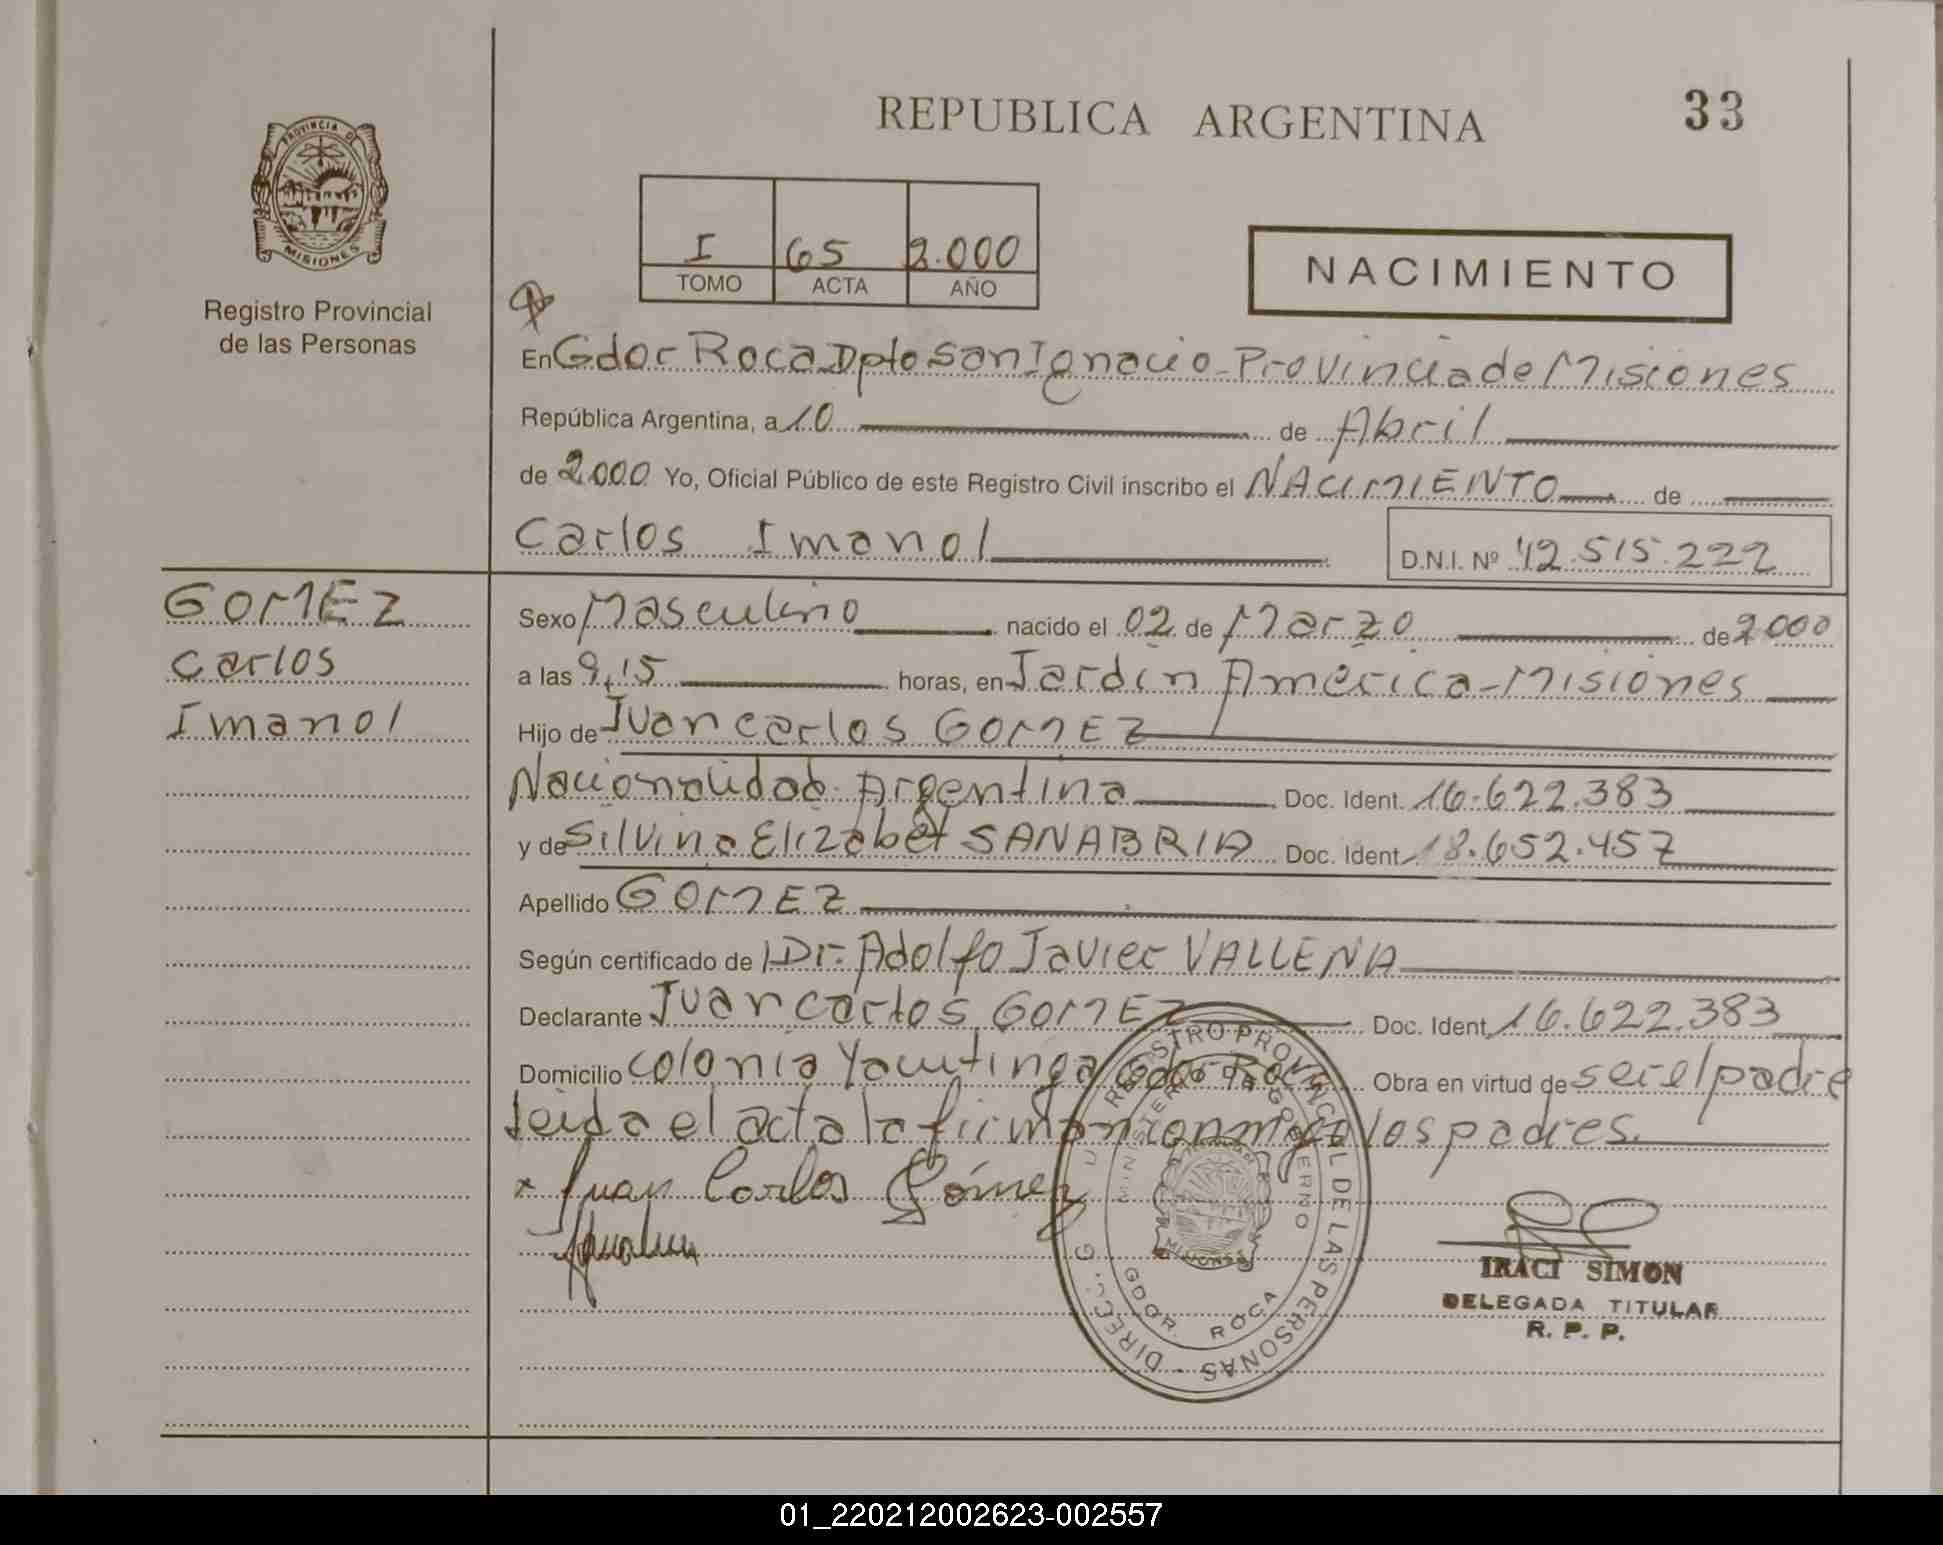 REPUBLICA ARGENTINA
33
PROVINCIA DE
MISIONES
Registro Provincial
de las Personas
I 65 2.000
TOMO ACTA AÑO
NACIMIENTO
En Gdor Roca Dpto San Ignacio - Provincia de Misiones
República Argentina, a 10 de Abril
de 2.000 Yo, Oficial Público de este Registro Civil inscribo el NACIMIENTO de
Carlos Imanol
D.N.I. Nº 42.515.222
GOMEZ
Carlos
Imanol
Sexo Masculino nacido el 02 de Marzo de 2000
a las 9,15 horas, en Jardín América - Misiones
Hijo de Juan Carlos GOMEZ
Nacionalidad Argentina Doc. Ident. 16.622.383
y de Silvina Elizabet SANABRIA Doc. Ident. 18.652.457
Apellido GOMEZ
Según certificado de Dr. Adolfo Javier VALLENA
Declarante Juan Carlos GOMEZ Doc. Ident. 16.622.383
Domicilio Colonia Yacutinga Gdor Roca Obra en virtud de ser el padre
leida el acta la firman conmigo los padres.
x Juan Carlos Gómez
REGISTRO PROVINCIAL DE LAS PERSONAS
MINISTERIO DE GOBIERNO
MISIONES
GDOR. ROCA
IRACI SIMON
DELEGADA TITULAR
R. P. P.
01_220212002623-002557